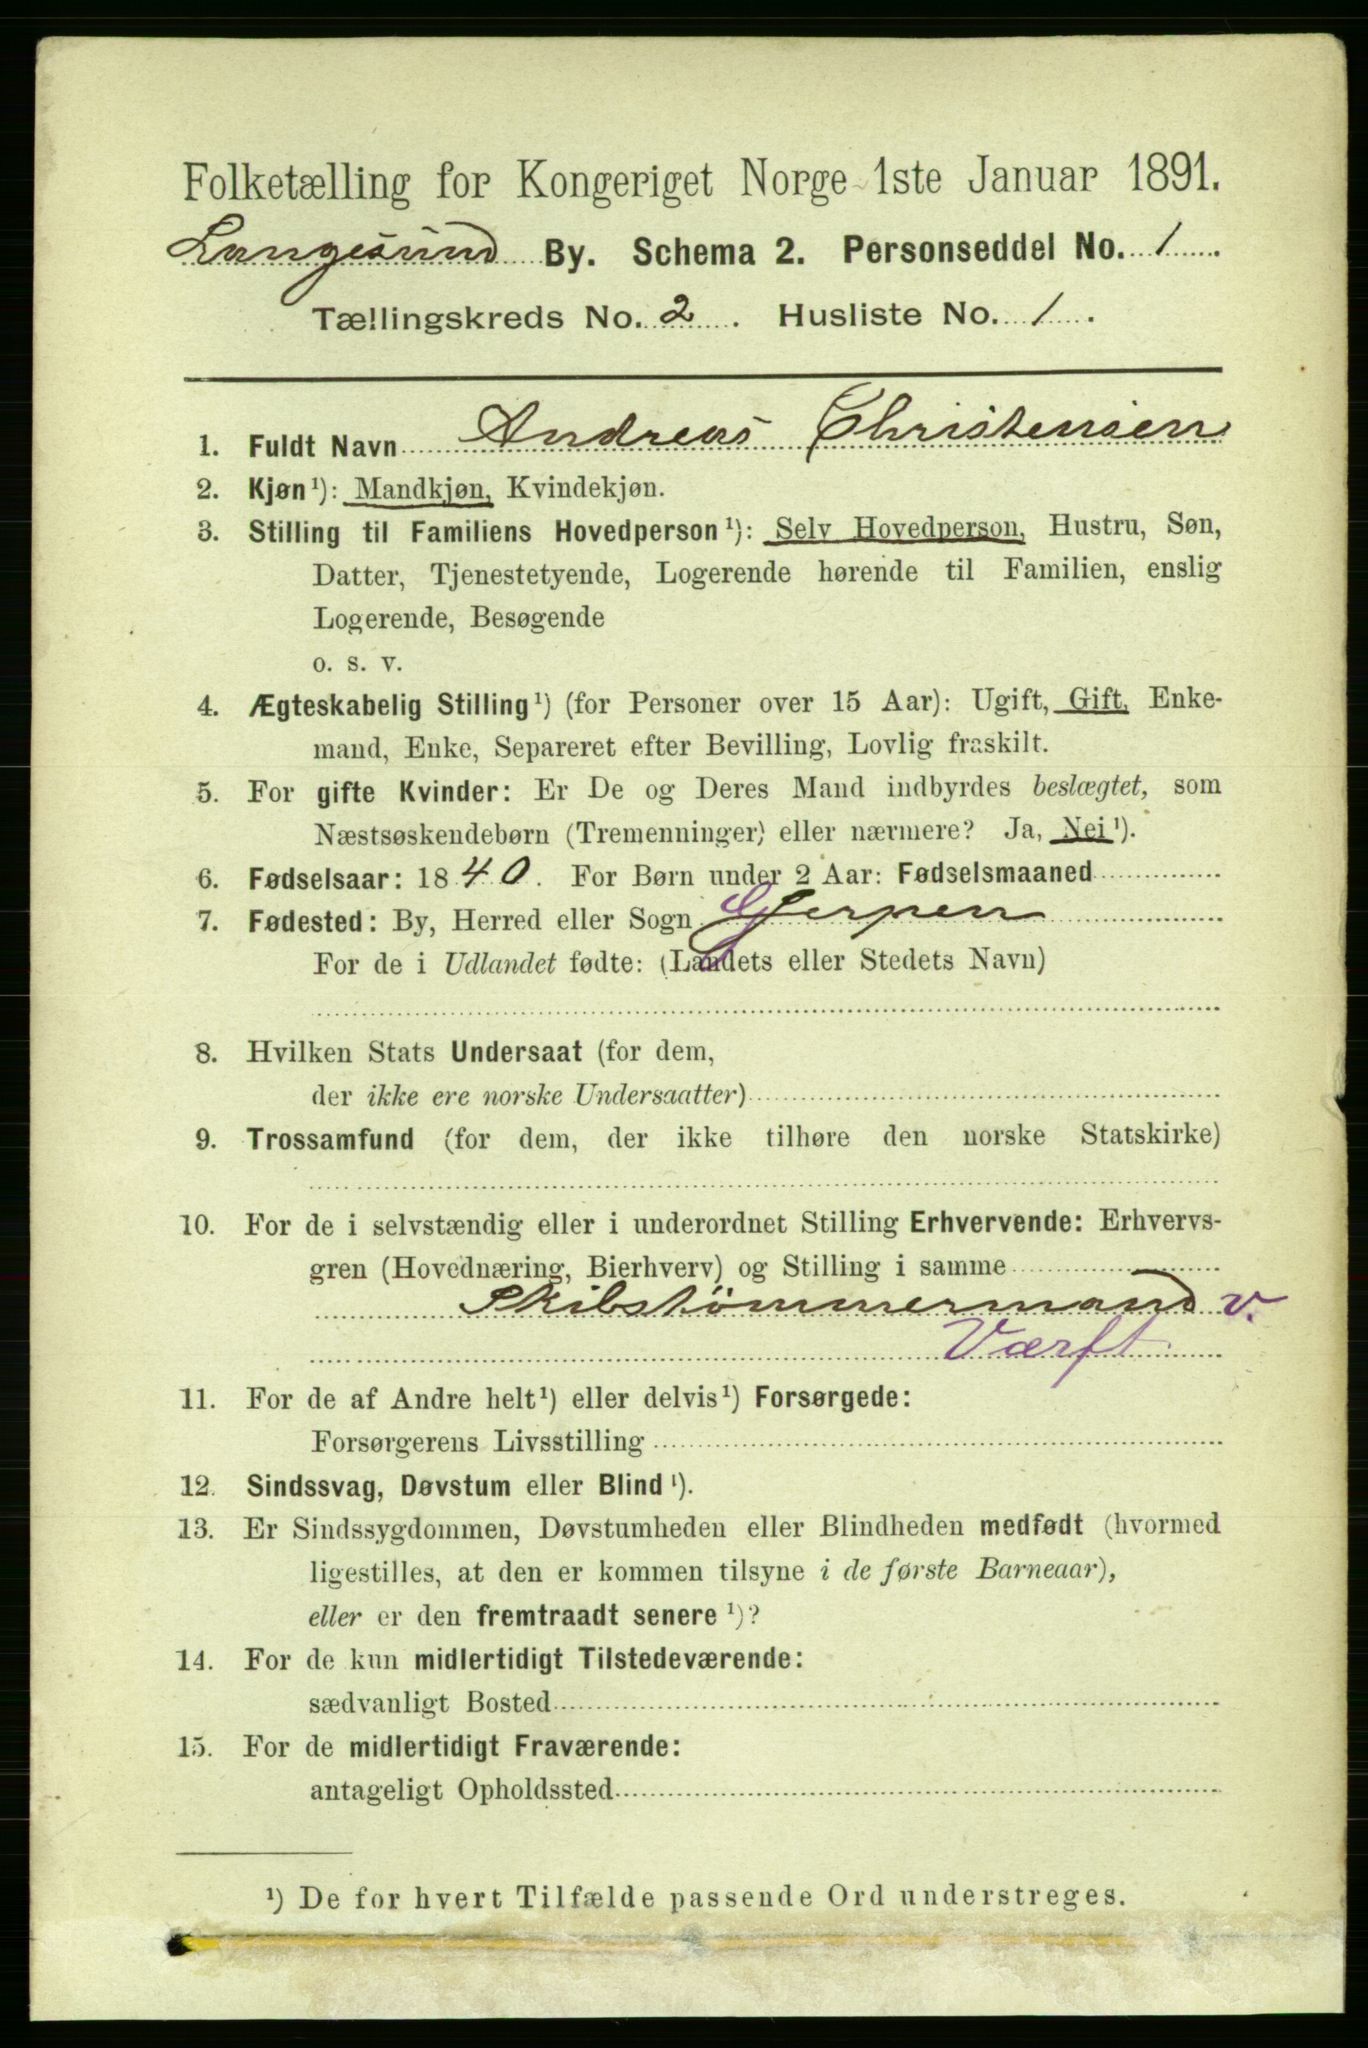 Folketælling for Kongeriget Norge 1ste Januar 1891.
Langesund By. Schema 2. Personseddel No. 1.
Tællingskreds No. 2. Husliste No. 1.
1. Fuldt Navn Andreas Christensen
2. Kjøn¹): Mandkjøn, Kvindekjøn.
3. Stilling til Familiens Hovedperson¹): Selv Hovedperson, Hustru, Søn,
Datter, Tjenestetyende, Logerende hørende til Familien, enslig
Logerende, Besøgende
o. s. v.
4. Ægteskabelig Stilling¹) (for Personer over 15 Aar): Ugift, Gift, Enke-
mand, Enke, Separeret efter Bevilling, Lovlig fraskilt.
5. For gifte Kvinder: Er De og Deres Mand indbyrdes beslægtet, som
Næstsøskendebørn (Tremenninger) eller nærmere? Ja, Nei¹).
6. Fødselsaar: 1840. For Børn under 2 Aar: Fødselsmaaned
7. Fødested: By, Herred eller Sogn Gjerpen
For de i Udlandet fødte: (Landets eller Stedets Navn)
8. Hvilken Stats Undersaat (for dem,
der ikke ere norske Undersaatter)
9. Trossamfund (for dem, der ikke tilhøre den norske Statskirke)
10. For de i selvstændig eller i underordnet Stilling Erhvervende: Erhvervs-
gren (Hovednæring, Bierhverv) og Stilling i samme
Skibstømmermand v.
Værft
11. For de af Andre helt¹) eller delvis¹) Forsørgede:
Forsørgerens Livsstilling
12. Sindssvag, Døvstum eller Blind¹).
13. Er Sindssygdommen, Døvstumheden eller Blindheden medfødt (hvormed
ligestilles, at den er kommen tilsyne i de første Barneaar),
eller er den fremtraadt senere¹)?
14. For de kun midlertidigt Tilstedeværende:
sædvanligt Bosted
15. For de midlertidigt Fraværende:
antageligt Opholdssted
¹) De for hvert Tilfælde passende Ord understreges.